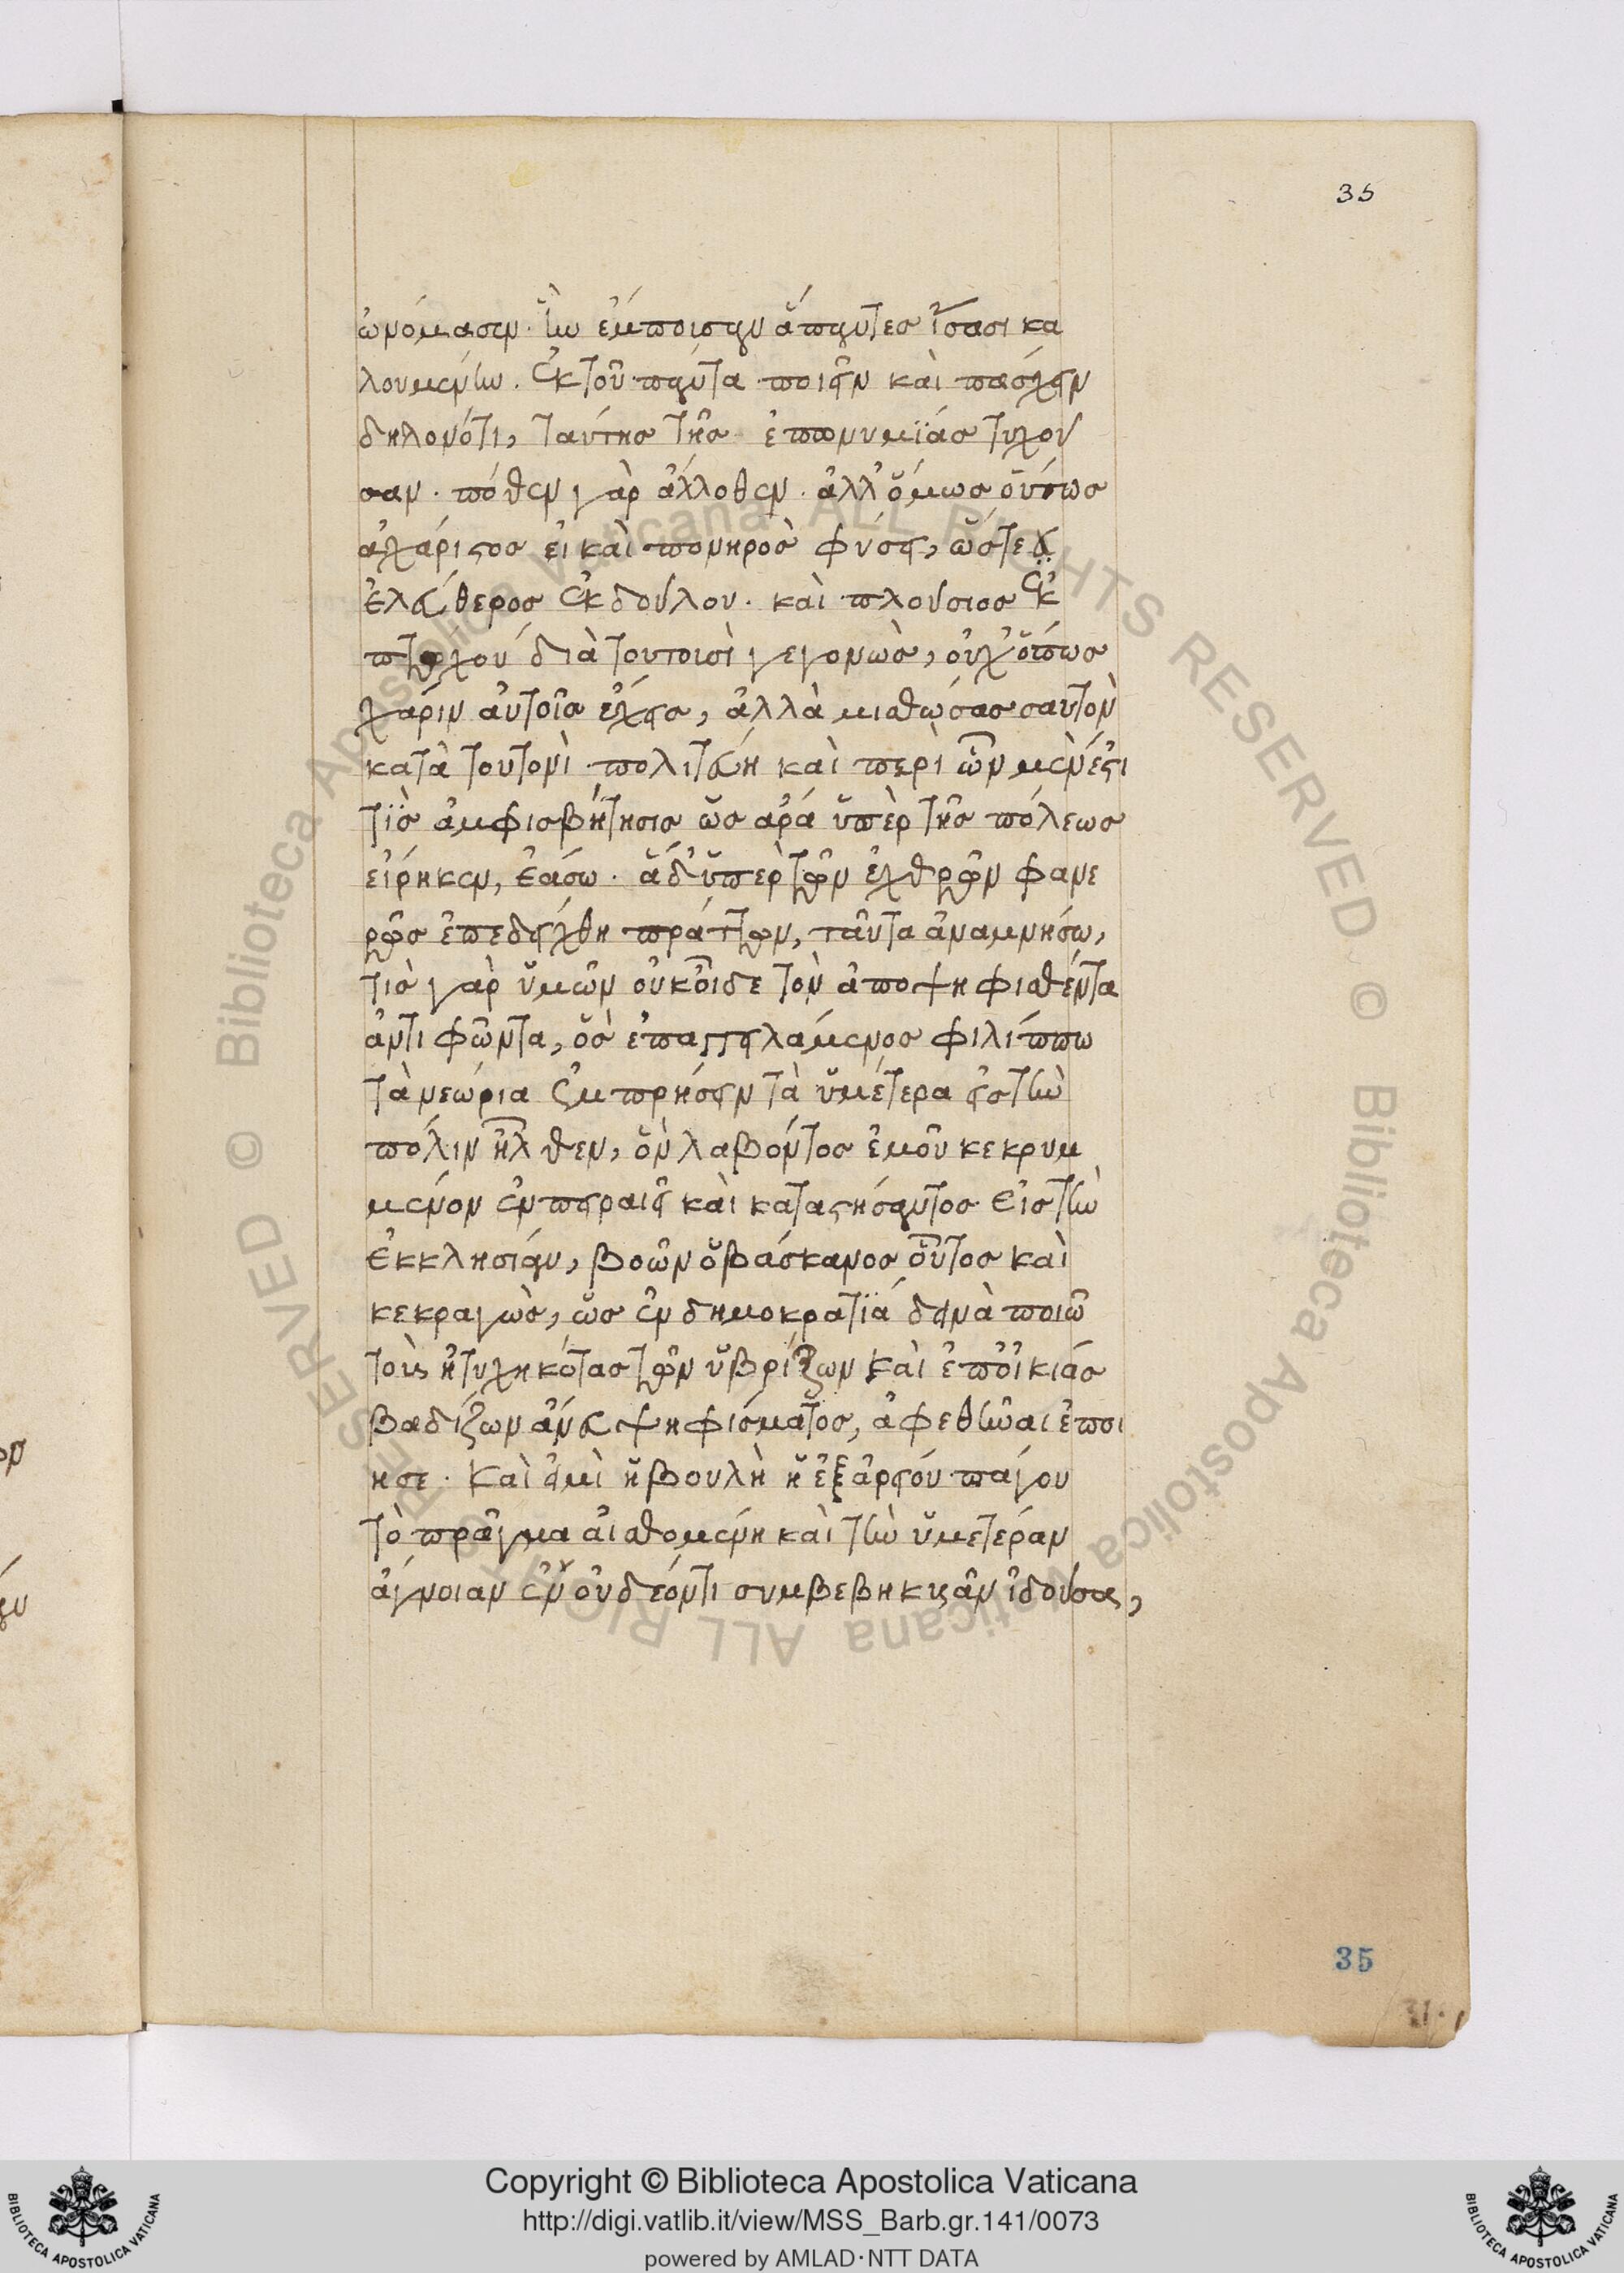 35
ὠνόμασεν· ἣν ἐμποισαν ἅπαντες ἴσασι κα
λουμένην. ἐκ τοῦ πάντα ποιεῖν καὶ πάσχειν
δηλονότι, ταύτης τῆς ἐπωνυμίας τυχοῦ
σαν· πόθεν γὰρ ἄλλοθεν· ἀλλ' ὅμως οὕτως
ἀχάριστος εἶ καὶ πονηρὸς φύσει, ὥστε
ἐλεύθερος ἐκ δούλου· καὶ πλούσιος ἐκ
πτωχοῦ διὰ τουτουσὶ γεγονὼς, οὐχ ὅπως
χάριν αὐτοῖς ἔχεις, ἀλλὰ μισθώσας σαυτὸν
κατὰ τουτονὶ πολιτεύῃ καὶ περὶ ὧν μὲν ἔστι
τὶς ἀμφισβήτησις ὡς ἄρα ὑπὲρ τῆς πόλεως
εἴρηκεν, ἐάσω· ἃ δ' ὑπὲρ τῶν ἐχθρῶν φανε
ρῶς ἐπεδείχθη πράττων, ταῦτα ἀναμνήσω,
τὶς γὰρ ὑμῶν οὐκ οἶδε τὸν ἀποψηφισθέντα
ἀντιφῶντα, ὃς ἐπαγγειλάμενος φιλίππω
τὰ νεώρια ἐμπρήσειν τὰ ὑμέτερα εἰς τὴν
πόλιν ἦλθεν, ὃν λαβόντος ἐμοῦ κεκρυμ
μένον ἐν πειραιεῖ καὶ καταστήσαντος εἰς τὴν
ἐκκλησίαν, βοῶν ὁ βάσκανος οὗτος καὶ
κεκραγὼς, ὡς ἐν δημοκρατία δεινὰ ποιῶ
τοὺς ἠτυχηκότας τῶν ὑβρίζων καὶ ἐπ' οἰκίας
βαδίζων ἄνευ ψηφίσματος, ἀφεθῆναι ἐποί
ησε· καὶ εἰ μὴ ἡ βουλὴ ἡ ἐξ ἀρείου πάγου
τὸ πρᾶγμα αἰσθομένη καὶ τὴν ὑμετέραν
ἄγνοιαν ἐν οὐ δέοντι συμβεβηκυῖαν ἰδοῦσα,
35
Copyright © Biblioteca Apostolica Vaticana
http://digi.vatlib.it/view/MSS_Barb.gr.141/0073
powered by AMLAD·NTT DATA